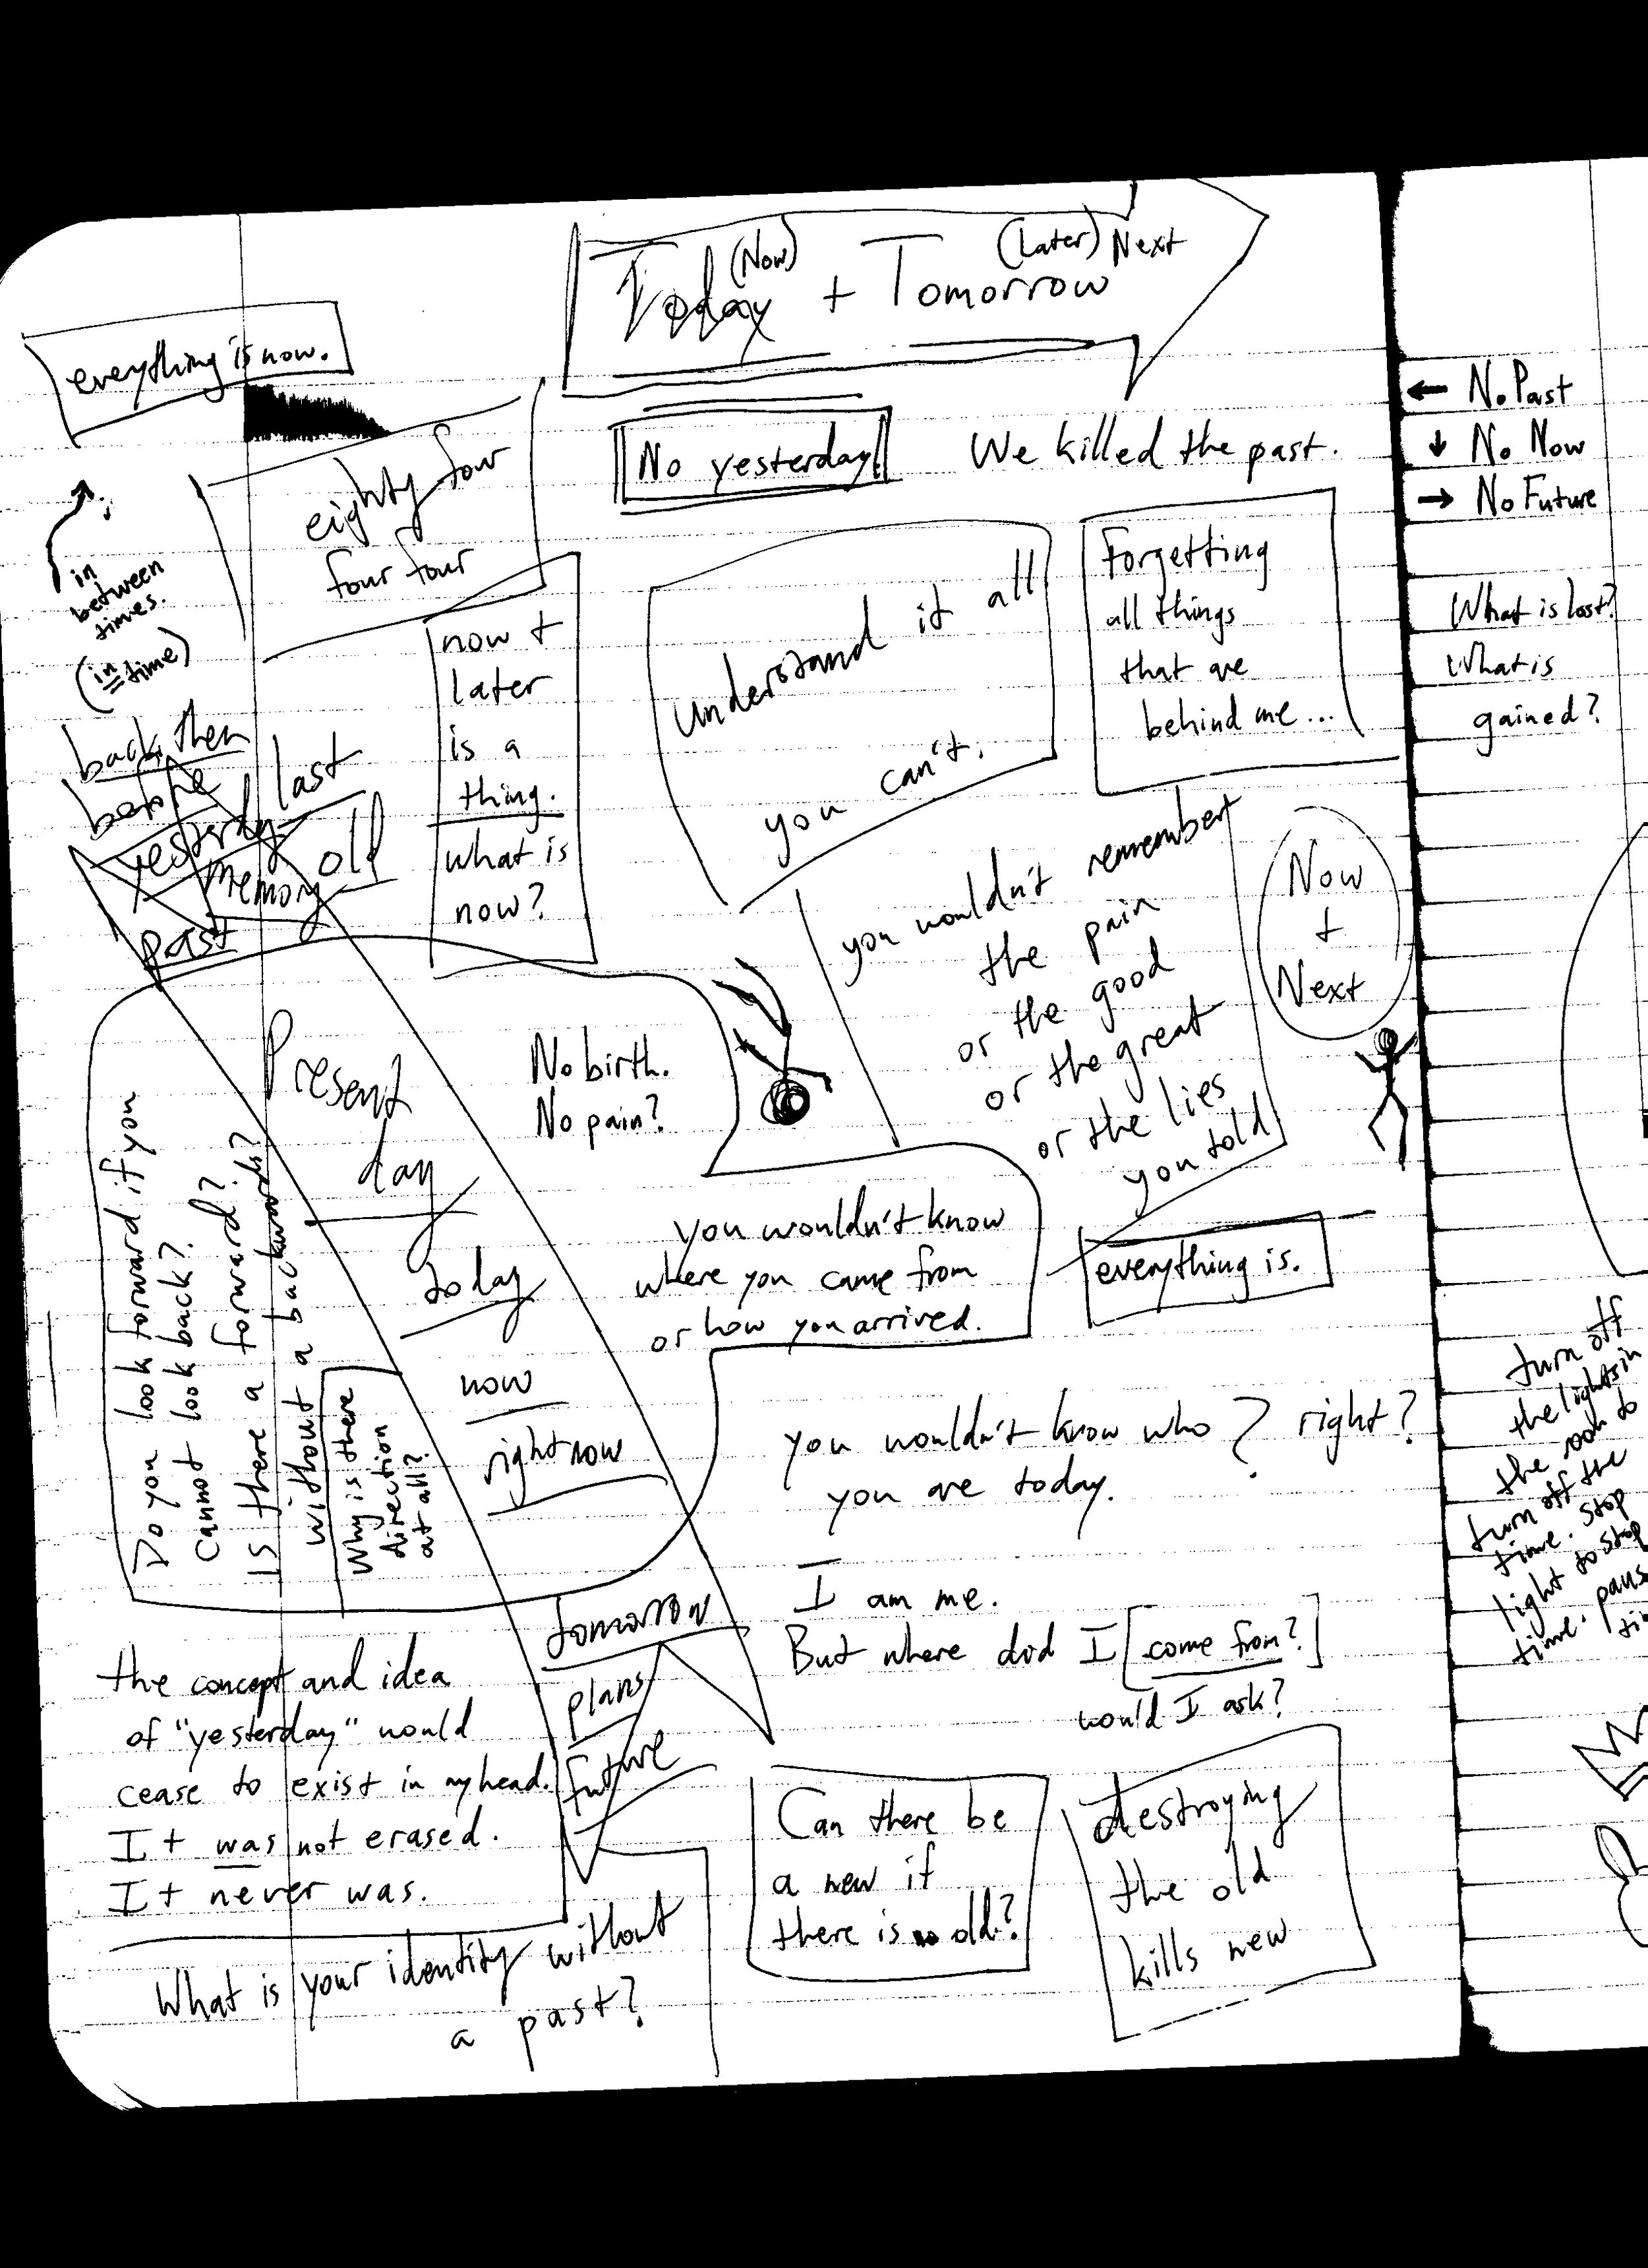 (Now) (Later) Next
Today + Tomorrow
everything is now.
No yesterday!
We killed the past.
eighty four
four four
in
between
times.
(in time)
now +
later
is a
thing.
what is
now?
understand it all
you can't.
Forgetting
all things
that are
behind me...
back then
before
last
yesterday
memory
old
past
Present
day
today
now
right now
tomorrow
plans
future
No birth.
No pain?
you wouldn't remember
the pain
or the good
or the great
or the lies
you told
Now
+
Next
you wouldn't know
where you came from
or how you arrived.
everything is.
Do you look forward if you
cannot look back?
Is there a forward?
without a backwards?
Why is there
direction
at all?
you wouldn't know who
you are today.
? right?
I am me.
But where did I [come from?]
would I ask?
the concept and idea
of "yesterday" would
cease to exist in my head.
It was not erased.
It never was.
What is your identity without
a past?
Can there be
a new if
there is no old?
destroying
the old
kills new
← No Past
↓ No Now
→ No Future
What is lost?
What is
gained?
turn off
the lights in
the room to
turn off the
time. stop
light to stop
time.